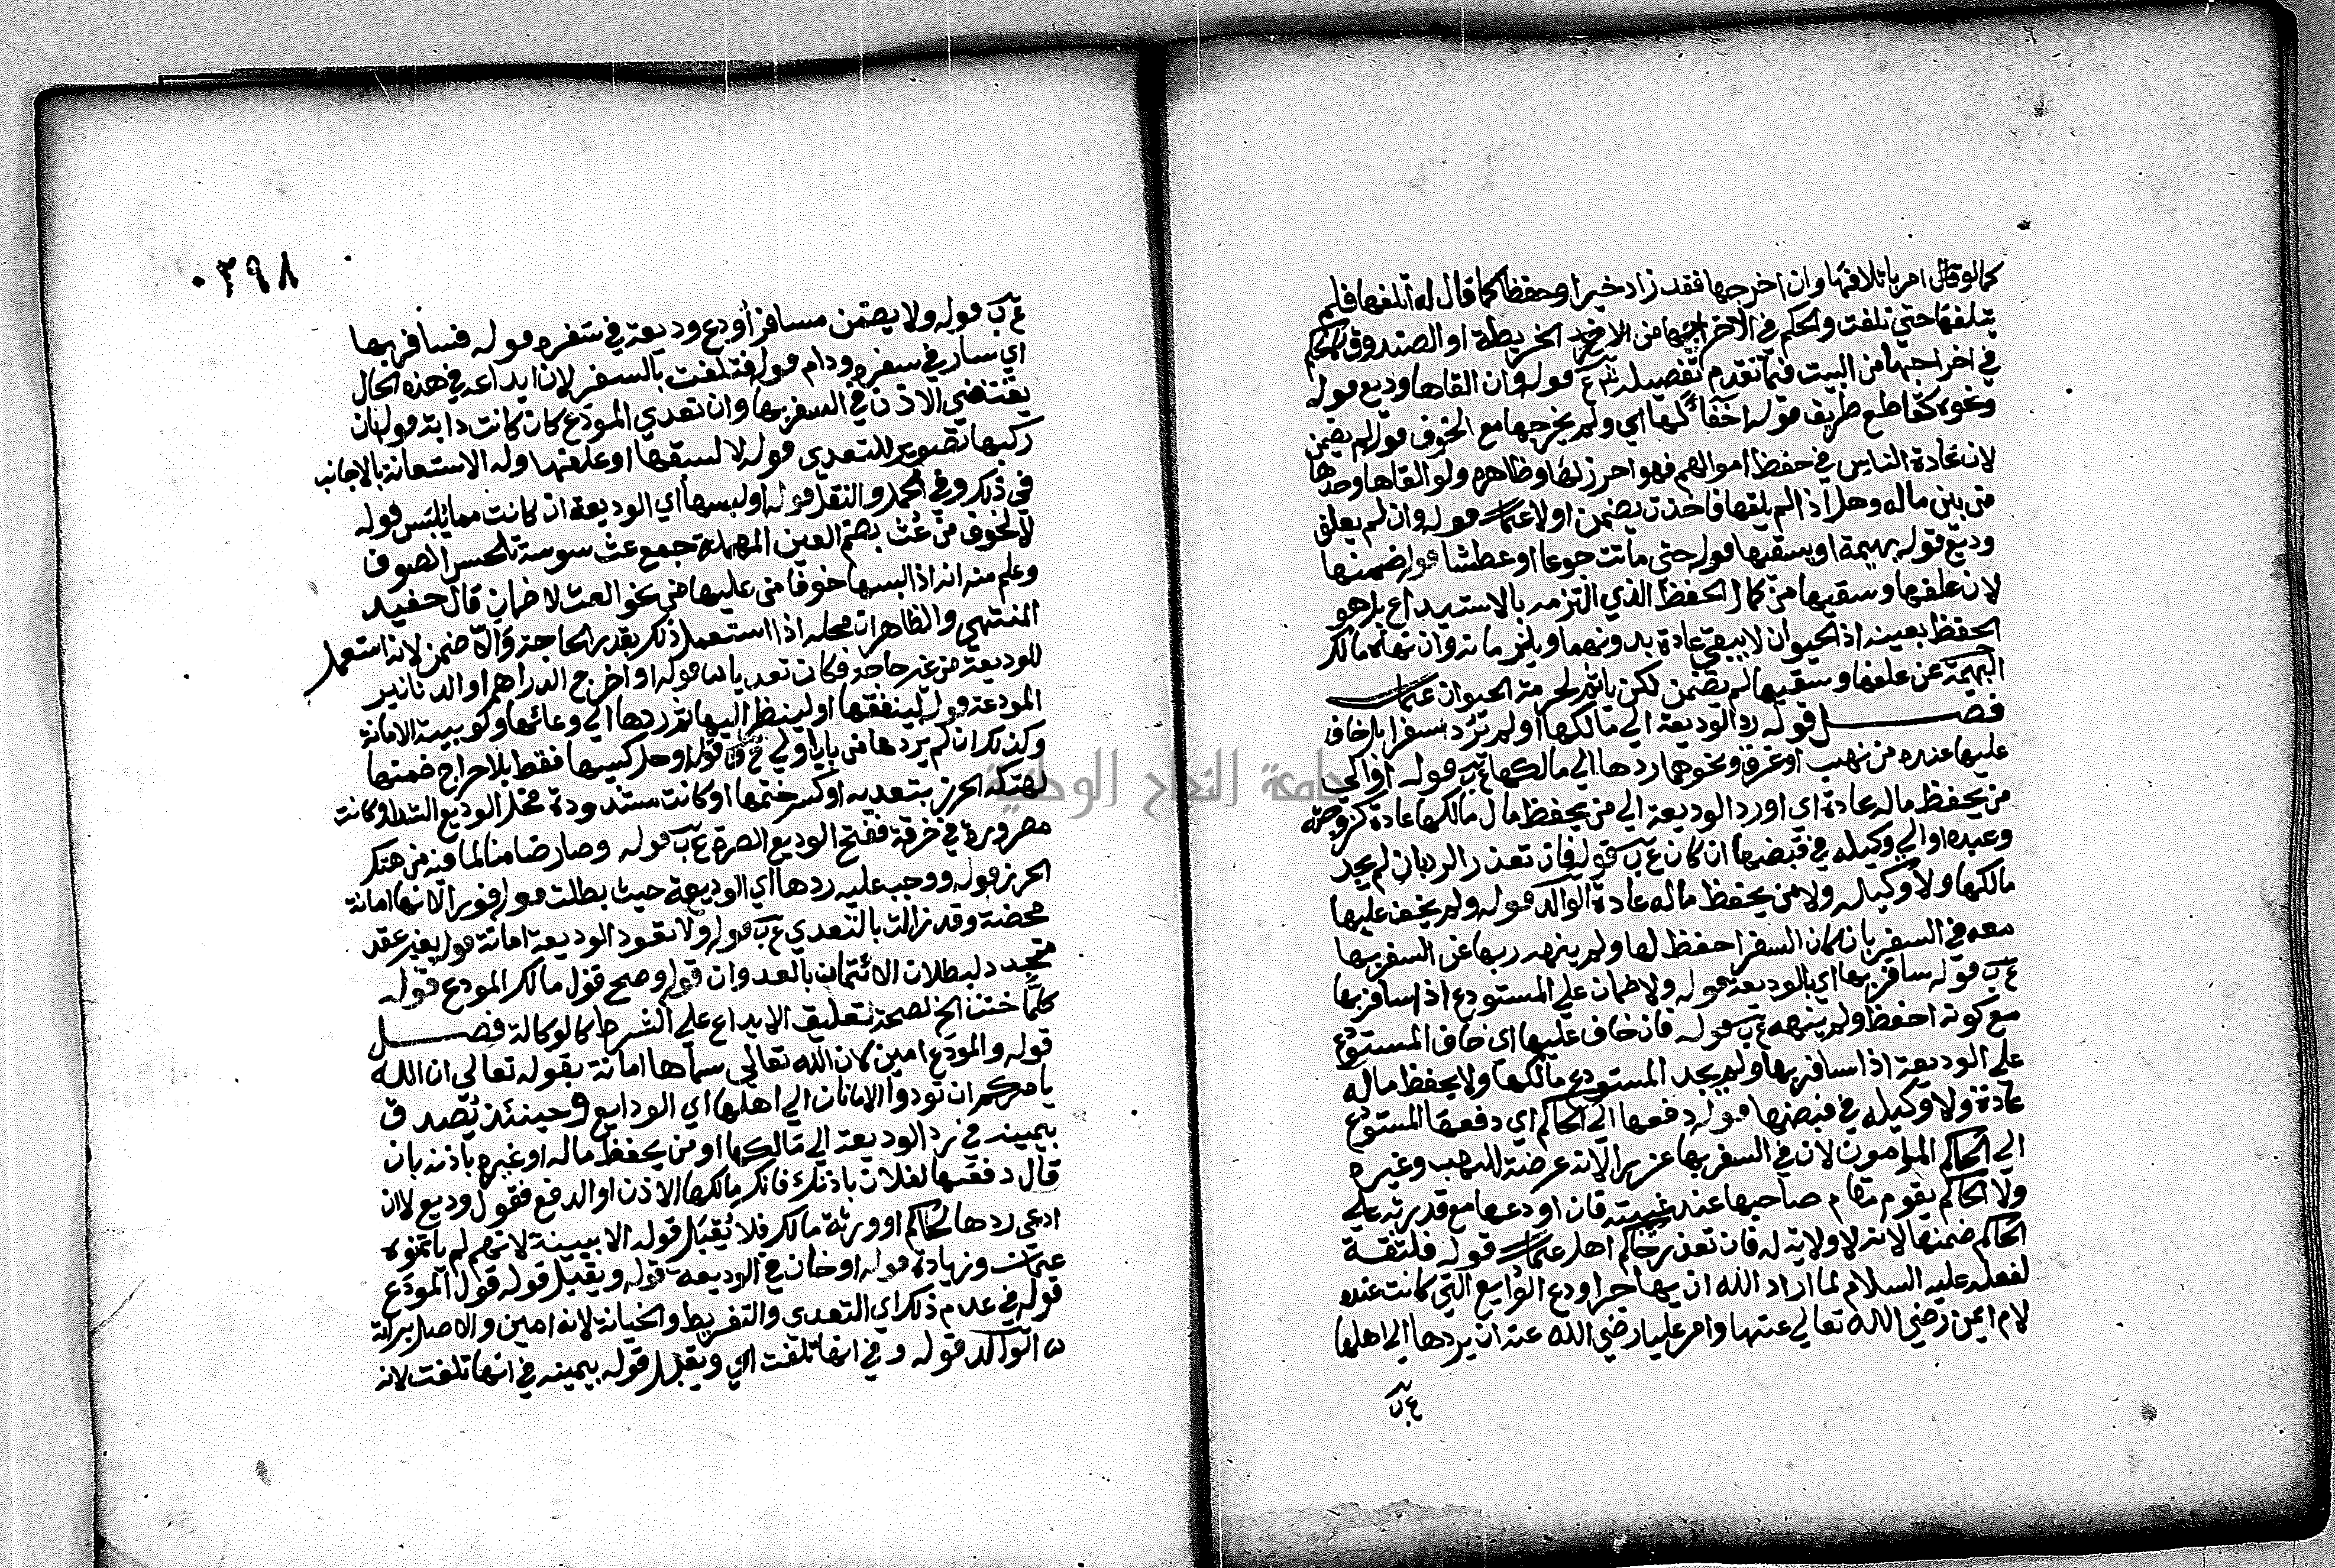 كما لو قال امر باتلافها وان اخرجها فقد زاد خيرا وحفظا كما قال له أتلفها فلم
يتلفها حتى تلفت والحكم في الاخراجها من الخريطة او الصندوق كالحكم
في اخراجها من البيت فما تقدم تفصيله ع قوله وان القاها وديع قوله
ونحوه كقاطع طريق قوله اخفاء لها اي ولم يخرجها مع الخوف قوله لم يضمن
لان عادة الناس في حفظ اموالهم فهو احرز لها وظاهره ولو القاها وحدها
من بين ماله وهل اذا لم يلقها فاخذت يضمن اولا عثمان قوله وان لم يعلف
وديع قوله بهيمة او يسقيها قوله حتى ماتت جوعا او عطشا قوله ضمنها
لان علفها وسقيها من كمال الحفظ الذي التزمه بالاستيداع بل هو
الحفظ بعينه اذ الحيوان لا يبقي عادة بدونهما ويلزمانه وان نهاه مالك
البهيمة عن علفها وسقيها لم يضمن لكن ياثم لحرمة الحيوان عثمان
فصل قوله رد الوديعة الي مالكها اولم ترد سفرا بل خاف
عليها عنده من نهب او غرق ونحوهما ردها الي مالكها ع ب قوله او الي
من يحفظ ماله عادة اي او رد الوديعة الي من يحفظ مال مالكها عادة كزوجته
وعبده او الي وكيله في قبضها ان كان ع ب قوله فان تعذر الرد بان لم يجد
مالكها ولا وكيله ولا من يحفظ ماله عادة الوالد قوله ولم يخف عليها
معه في السفر بان كان السفر احفظ لها ولم ينهه ربها عن السفر بها
ع ب قوله سافر بها اي بالوديعة قوله ولا ضمان علي المستودع اذا سافر بها
مع كونه احفظ ولم ينهه ع ب قوله فان خاف عليها اي خاف المستودع
علي الوديعة اذا سافر بها ولم يجد المستودع مالكها ولا يحفظ ماله
عادة ولا وكيله في قبضها قوله دفعها الي الحاكم اي دفعها المستودع
الي الحاكم المامون لان في السفر بها غررا لانه عرضة النهب وغيره
ولا الحاكم يقوم مقام صاحبها عند غيبته فان اودعها مع قدرته علي
الحاكم ضمنها لانه لا ولاية له فان تعذر حاكم اهل عثمان قوله فلثقة
لفعله عليه السلام لما اراد الله ان يهاجر اودع الودايع التي كانت عنده
لام ايمن رضي الله تعالي عنها وامر عليا رضي الله عنه ان يردها الي اهلها
ع ب
٠٣٩٨
ع ب قوله ولا يضمن مسافر أودع وديعة في سفره قوله فسافر بها
اي سار في سفره ودام قوله فتلفت بالسفر لان ايداعه في هذه الحال
يقتضي الاذن في السفر بها وان تعدي المودع كان كانت دابة قوله بان
ركبها تصوير للتعدي قوله لا لسقيها او علفها وله الاستعانة بالاجانب
في ذلك وفي الحمل والنقل قوله او لبسها اي الوديعة ان كانت مما يلبس قوله
لا لخوف من عُث بضم العين المهملة جمع عث سوسة تلحس الصوف
وعلم منه انه اذا لبسها خوفا من عليها من نحو العث لا ضمان قال حفيد
المنتهي والظاهر ان محله اذا استعمل ذلك بقدر الحاجة والا ضمن لانه استعمل
للوديعة من غير حاجة فكان تعديا قوله او اخرج الدراهم او الدنانير
المودعة قوله لينفقها او لينظر اليها ثم ردها الي وعائها ولو بنية الامانة
وكذلك ان لم يردها من باب اولي قوله او حل كيسها فقط بلا اخراج ضمنها
لهتكه الحرز بتعديه او كسر ختمها او كانت مشدودة فحل الوديع الشد او كانت
مصرورة في خرقة ففتح الوديع الصرة ع ب قوله وصار ضامنا لما فيه من هتك
الحرز قوله ووجب عليه ردها اي الوديعة حيث بطلت قوله فورا لانها امانة
محضة وقد زالت بالتعدي ع ب قوله ولا تعود الوديعة امانة قوله بغير عقد
متجدد لبطلان الائتمان بالعدوان قوله وصح قول مالك المودع قوله
كلما خنت الخ لصحة تعليق الايداع علي الشرط كالوكالة فصل
قوله والمودع امين لان الله تعالي سماها امانة بقوله تعالي ان الله
يامركم ان تودوا الامانات الي اهلها اي الودايع وحينئذ يصدق
بيمينه في رد الوديعة الي مالكها او من يحفظ ماله او غيره باذنه بان
قال دفعتها لفلان باذنك فانكر مالكها الاذن او الدفع فقول وديع لا ان
ادعي ردها لحاكم او ورثة مالك فلا يقبل قوله الا ببينة لانهم لم يأتمنوه
عثمان وزيادة قوله او خان في الوديعة قوله ويقبل قوله قول المودع
قوله في عدم ذلك اي التعدي والتفريط والخيانة لانه امين والاصل براءته
الوالد قوله وفي انها تلفت اي ويقبل قوله بيمينه في انها تلفت لانه
جامعة النجاح الوطنية